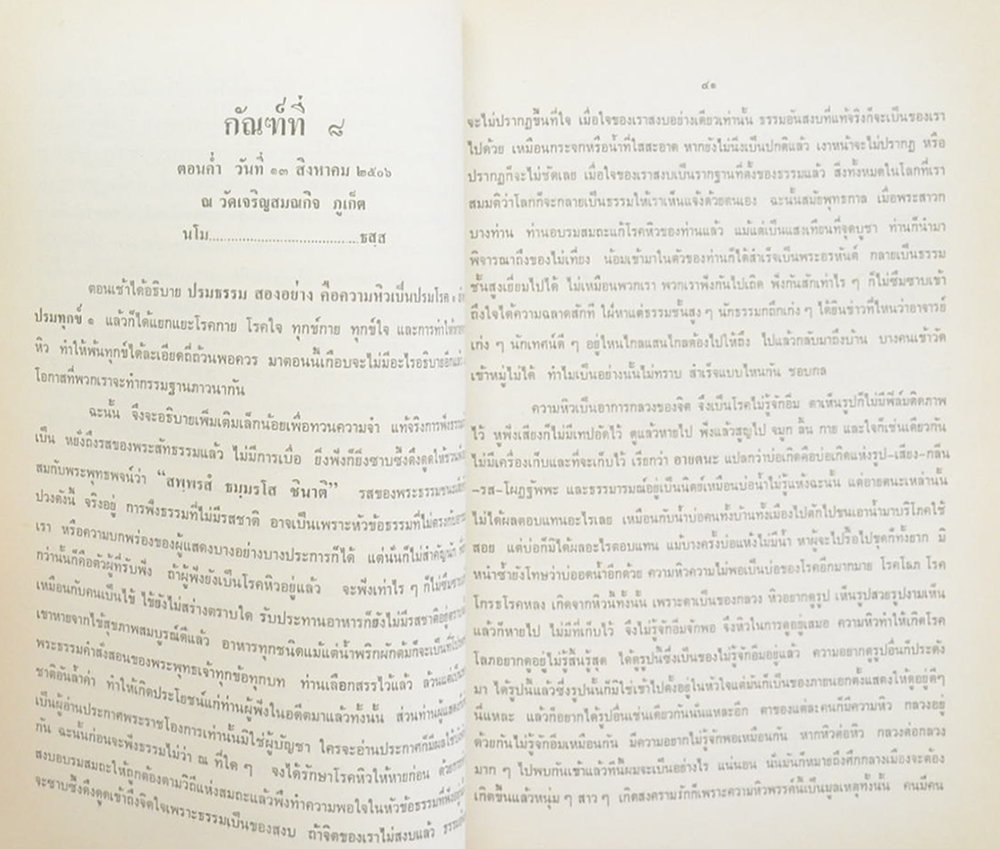 กัณฑ์ที่ ๘
ตอนค่ำ วันที่ ๑๓ สิงหาคม ๒๕๐๖
ณ วัดเจริญสมณกิจ ภูเก็ต
นโม........................................ธสฺส
ตอนเช้าได้อธิบาย ปรมธรรม สองอย่าง คือความหิวเป็นปรมโรค ๑
ปรมทุกข์ ๑ แล้วก็ได้แยกแยะโรคกาย โรคใจ ทุกข์กาย ทุกข์ใจ และการทำ
หิว ทำให้พ้นทุกข์ได้ละเอียดถี่ถ้วนพอควร มาตอนนี้เกือบจะไม่มีอะไรอธิบาย
โอกาสที่พวกเราจะทำกรรมฐานภาวนากัน
ฉะนั้น จึงจะอธิบายเพิ่มเติมเล็กน้อยเพื่อทวนความจำ แท้จริงการฟังธรรม
เป็น หยั่งถึงรสของพระสัทธรรมแล้ว ไม่มีการเบื่อ ยิ่งฟังก็ยิ่งซาบซึ้งดึงดูดให้
สมกับพระพุทธพจน์ว่า “สพฺพรสํ ธมฺมรโส ชินาติ” รสของพระธรรมชนะ
ปวงดังนี้ จริงอยู่ การฟังธรรมที่ไม่มีรสชาติ อาจเป็นเพราะหัวข้อธรรมที่ไม่ตรงกับ
เรา หรือความบกพร่องของผู้แสดงบางอย่างบางประการก็ได้ แต่นั่นก็ไม่สำคัญนัก
กว่านั้นก็คือตัวผู้ที่รับฟัง ถ้าผู้ฟังยังเป็นโรคหิวอยู่แล้ว จะฟังเท่าไร ๆ ก็ไม่ซึม
เหมือนกับคนเป็นไข้ ไข้ยังไม่สร่างตราบใด รับประทานอาหารก็ยังไม่มีรสชาติอยู่
เขาหายจากไข้สุขภาพสมบูรณ์ดีแล้ว อาหารทุกชนิดแม้แต่น้ำพริกผักต้มก็จะเป็น
พระธรรมคำสั่งสอนของพระพุทธเจ้าทุกข้อทุกบท ท่านเลือกสรรไว้แล้ว ล้วนแต่
ชาติอันล้ำค่า ทำให้เกิดประโยชน์แก่ท่านผู้ฟังในอดีตมาแล้วทั้งนั้น ส่วนท่านผู้แสดง
เป็นผู้อ่านประกาศพระราชโองการเท่านั้นมิใช่ผู้บัญชา ใครจะอ่านประกาศก็มีผลใช้
กัน ฉะนั้นก่อนจะฟังธรรมไม่ว่า ณ ที่ใด ๆ จงได้รักษาโรคหิวให้หายก่อน ด้วย
สงบอบรมสมถะให้ถูกต้องตามวิถีแห่งสมถะแล้วฟังทำความพอใจในหัวข้อธรรมที่ฟังอยู่
จะซาบซึ้งดึงดูดเข้าถึงจิตใจเพราะธรรมเป็นของสงบ ถ้าจิตของเราไม่สงบแล้ว ธรรม
๔๑
จะไม่ปรากฏขึ้นที่ใจ เมื่อใจของเราสงบอย่างเดียวเท่านั้น ธรรมอันสงบที่แท้จริงก็จะเป็นของเรา
ไปด้วย เหมือนกระจกหรือน้ำที่ใสสะอาด หากยังไม่นิ่งเป็นปกติแล้ว เงาหน้าจะไม่ปรากฏ หรือ
ปรากฏก็จะไม่ชัดเลย เมื่อใจของเราสงบเป็นรากฐานที่ตั้งของธรรมแล้ว สิ่งทั้งหมดในโลกที่เรา
สมมติว่าโลกก็จะกลายเป็นธรรมให้เราเห็นแจ้งด้วยตนเอง ฉะนั้นสมัยพุทธกาล เมื่อพระสาวก
บางท่าน ท่านอบรมสมถะแก้โรคหิวของท่านแล้ว แม้แต่เป็นแสงเทียนที่จุดบูชา ท่านก็นำมา
พิจารณาถึงของไม่เที่ยง น้อมเข้ามาในตัวของท่านก็ได้สำเร็จเป็นพระอรหันต์ กลายเป็นธรรม
ชั้นสูงเยี่ยมไปได้ ไม่เหมือนพวกเรา พวกเราฟังกันไปเถิด ฟังกันสักเท่าไร ๆ ก็ไม่ซึมซาบเข้า
ถึงใจได้ความฉลาดสักที ใฝ่หาแต่ธรรมชั้นสูง ๆ นักธรรมกถึกเก่ง ๆ ได้ยินข่าวที่ไหนว่าอาจารย์
เก่ง ๆ นักเทศน์ดี ๆ อยู่ไหนไกลแสนไกลต้องไปให้ถึง ไปแล้วกลับมาถึงบ้าน บางคนเข้าวัด
เข้าหมู่ไม่ได้ ทำไมเป็นอย่างนั้นไม่ทราบ สำเร็จแบบไหนกัน ชอบกล
ความหิวเป็นอาการกลวงของจิต จึงเป็นโรคไม่รู้จักอิ่ม ตาเห็นรูปก็ไม่มีฟิล์มติดภาพ
ไว้ หูฟังเสียงก็ไม่มีเทปอัดไว้ ดูแล้วหายไป ฟังแล้วสูญไป จมูก ลิ้น กาย และใจก็เช่นเดียวกัน
ไม่มีเครื่องเก็บและที่จะเก็บไว้ เรียกว่า อายตนะ แปลกว่าบ่อเกิดคือบ่อเกิดแห่งรูป-เสียง-กลิ่น
-รส-โผฏฐัพพะ และธรรมารมณ์อยู่เป็นนิตย์เหมือนบ่อน้ำไม่รู้แห้งฉะนั้น แต่อายตนะเหล่านั้น
ไม่ได้ผลตอบแทนอะไรเลย เหมือนกับน้ำบ่อคนทั้งบ้านทั้งเมืองไปตักไปขนเอาน้ำมาบริโภคใช้
สอย แต่บ่อก็มิได้ผลอะไรตอบแทน แม้บางครั้งบ่อแห้งไม่มีน้ำ หาผู้จะไปรื้อไปขุดก็ทั้งยาก มิ
หนำซ้ำยังโทษว่าบ่ออดน้ำอีกด้วย ความหิวความไม่พอเป็นบ่อของโรคอีกมากมาย โรคโลภ โรค
โกรธโรคหลง เกิดจากหิวนี้ทั้งนั้น เพราะตาเป็นของกลวง หิวอยากดูรูป เห็นรูปสวยรูปงามเห็น
แล้วก็หายไป ไม่มีที่เก็บไว้ จึงไม่รู้จักอิ่มจักพอ จึงหิวในการดูอยู่เสมอ ความหิวทำให้เกิดโรค
โลภอยากดูอยู่ไม่รู้สิ้นรู้สุด ได้ดูรูปนี้ซึ่งเป็นของไม่รู้จักอิ่มอยู่แล้ว ความอยากดูรูปอื่นก็ประดัง
มา ได้รูปนี้แล้วซึ่งรูปนั้นก็มิใช่เข้าไปตั้งอยู่ในหัวใจแต่มันก็เป็นของภายนอกตั้งแสดงให้ดูอยู่ดีๆ
นี่แหละ แล้วก็อยากได้รูปอื่นเช่นเดียวกันนั่นแหละอีก ตาของแต่ละคนก็มีความหิว กลวงอยู่
ด้วยกันไม่รู้จักอิ่มเหมือนกัน มีความอยากไม่รู้จักพอเหมือนกัน หากหิวต่อหิว กลวงต่อกลวง
มาก ๆ ไปพบกันเข้าแล้วทีนี้ผมจะเป็นอย่างไร แน่นอน นั่นมันก็หมายถึงศึกกลางเมืองจะต้อง
เกิดขึ้นแล้วหนุ่ม ๆ สาว ๆ เกิดสงครามรักก็เพราะความหิวพรรค์นี้เป็นมูลเหตุทั้งนั้น คนมีคน